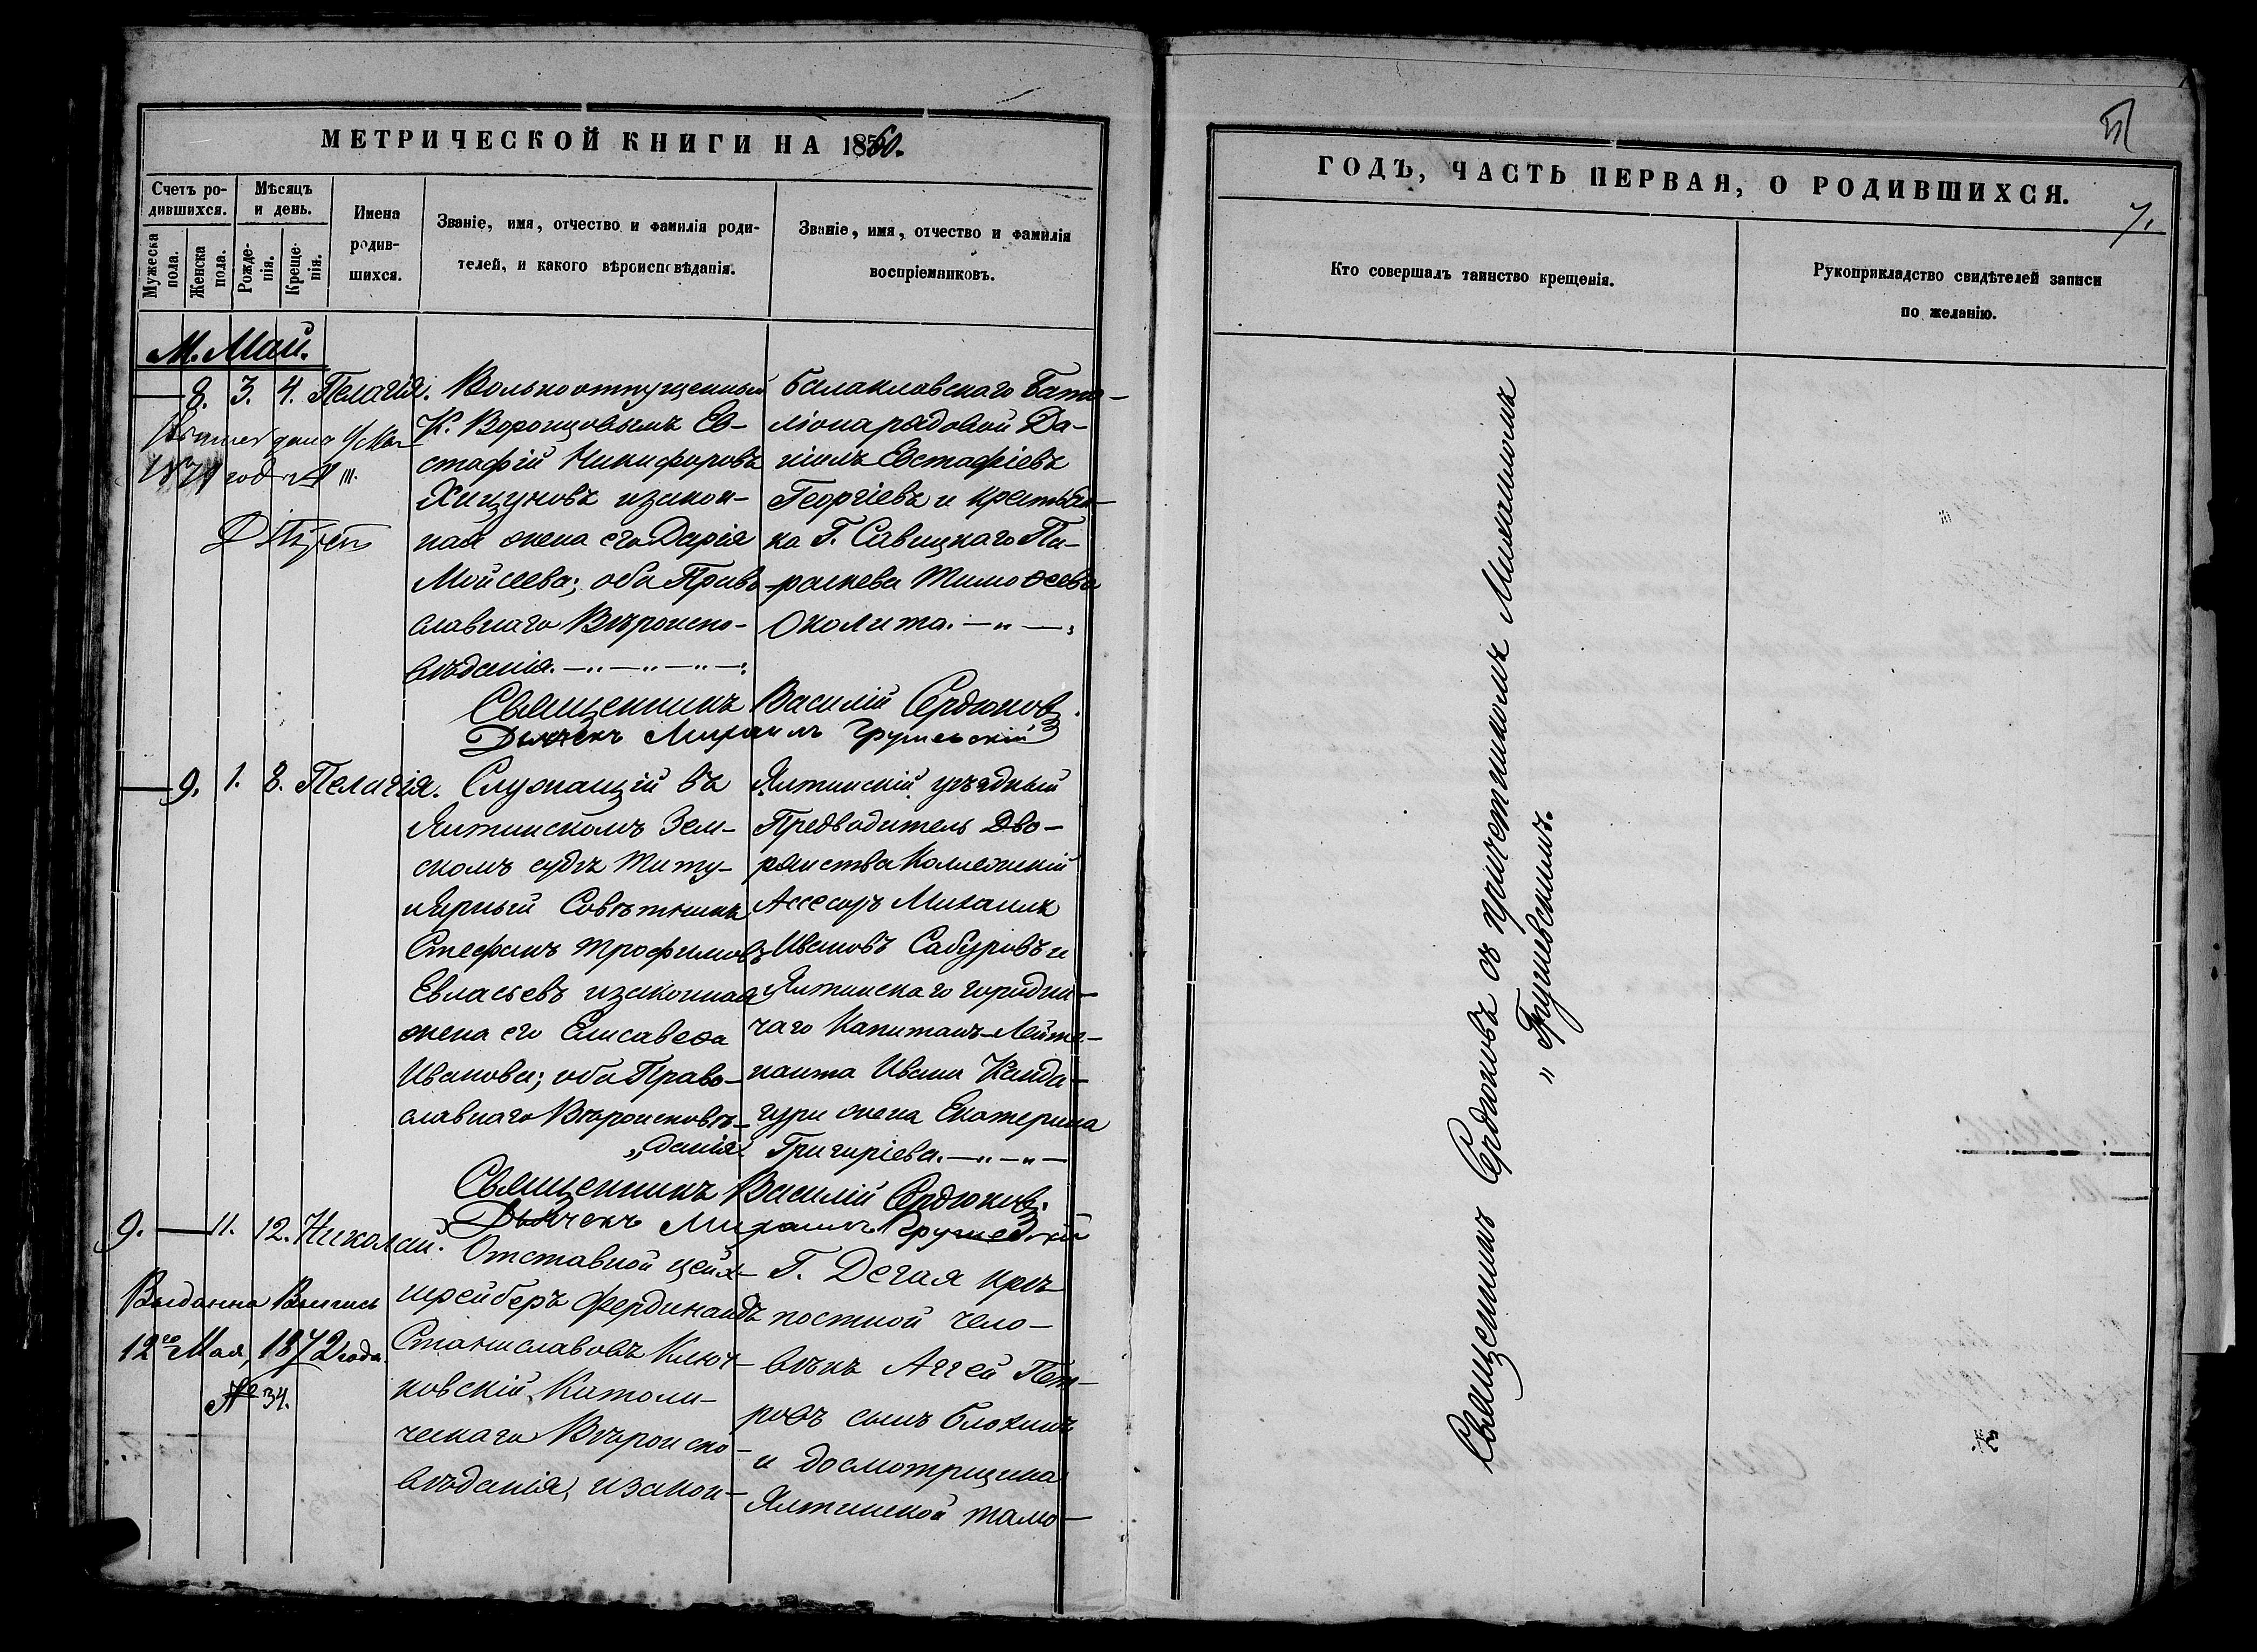 МЕТРИЧЕСКОЙ КНИГИ НА 1860.
Счетъ ро-
дившихся.
Мужеска
пола.
Женска
пола.
Мѣсяцъ
и день.
Рожде-
нія.
Креще-
нія.
Имена
родив-
шихся.
Званіе, имя, отчество и фамилія роди-
телей, и какого вѣроисповѣданія.
Званіе, имя, отчество и фамилія
воспріемниковъ.
М. Май.
8. 3. 4. Пелагія.
Вольноотпущенный
К. Воронцовымъ Ев-
стафій Никифоровъ
Хицуновъ изакон-
ная жена его Дарія
Мойсеева; оба Право-
славнаго Вѣроиспо-
вѣданія.
Балаклавскаго Бата-
ліона рядовой Да-
ніилъ Евстафіевъ
Георгіевъ и крестьян-
ка Г. Савицкаго Па-
раскева Тимоѳеева
Околита.
1871 год
Священникъ Василій Сердюковъ.
Дьячекъ Михаилъ Грушевскій
9. 1. 8. Пелагія.
Служащій въ
Ялтинскомъ Зем-
скомъ судѣ Титу-
лярный Совѣтникъ
Стефанъ Трофимовъ
Евласьевъ изаконная
жена его Елисавета
Иванова; оба Право-
славнаго Вѣроисповѣ-
„данія
Ялтинскій уѣздный
Предводитель Дво-
рянства Коллежскій
Ассесоръ Михаилъ
Ивановъ Сабуровъ и
Ялтинскаго городни-
чаго Капитанъ-Лейте-
нанта Ивана Канда-
гури жена Екатерина
Григоріева.
Священникъ Василій Сердюковъ.
Дьячекъ Михаилъ Грушевскій
9. 11. 12. Николай.
Выданна Выпись
12го Мая, 1872 года.
№ 34.
Отставной цейх-
шрейберъ Фердинандъ
Станиславовъ Ключ-
ковскій, Католи-
ческаго Вѣроиспо-
вѣданія, изакон-
Г. Дегая крѣ-
постной чело-
вѣкъ Аггей Пет-
ровъ сынъ Блохинъ
и досмотрщика
Ялтинской тамо-
ГОДЪ, ЧАСТЬ ПЕРВАЯ, О РОДИВШИХСЯ.
7.
Кто совершалъ таинство крещенія.
Рукоприкладство свидѣтелей записи
по желанію.
Священникъ Сердюковъ съ причетникомъ Михаиломъ
„ Грушевскимъ.